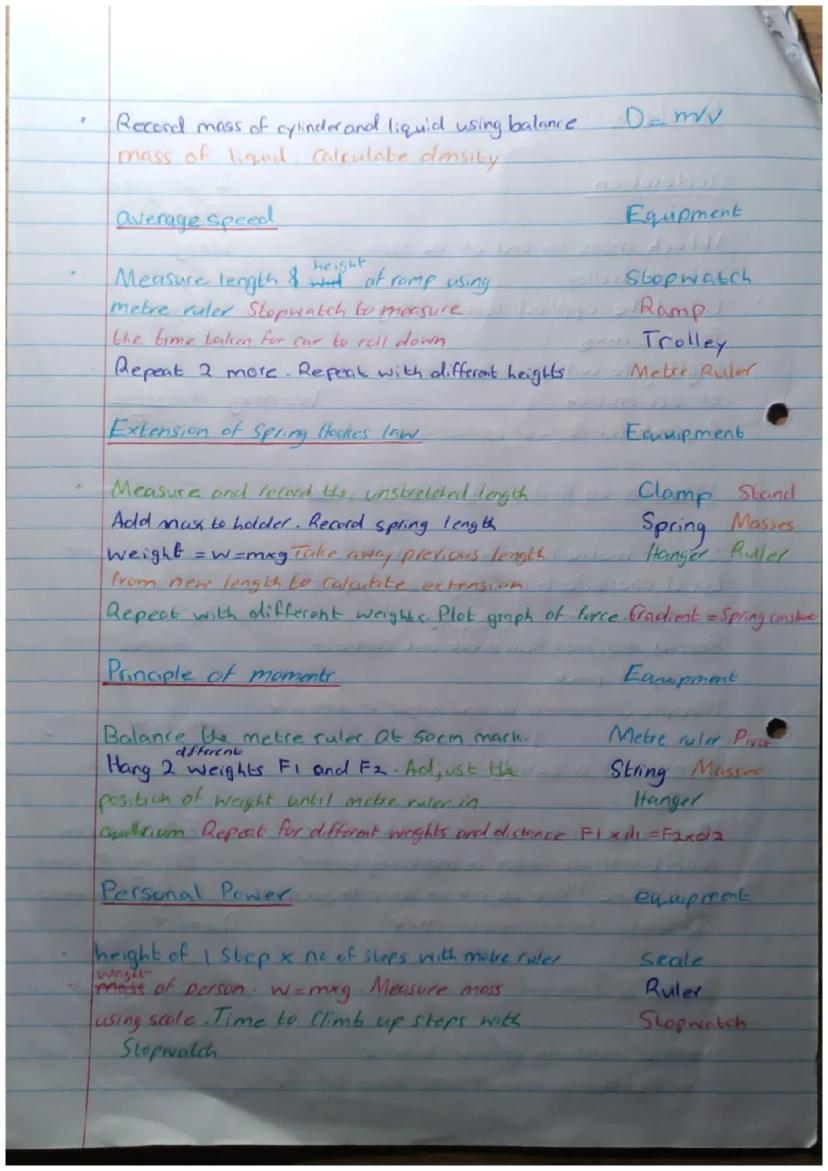 Record mass of cylinder and liquid using balance D = m/v
mass of liquid. Calculate density
average speed Equipment
height
Measure length & of ramp using Stopwatch
metre ruler Stopwatch to measure Ramp
the time taken for car to roll down Trolley
Repeat 2 more. Repeat with different heights Metre Ruler
Extension of Spring Hookes law Equipment
Measure and record the unstretched length Clamp Stand
Add mass to holder. Record spring length Spring Masses
weight = w=mxg Take away previous length Hanger Ruler
from new length to calculate extension
Repeat with different weights. Plot graph of force. Gradient = Spring constant
Principle of moments Equipment
Balance the metre ruler at 50cm mark. Metre ruler Pivot
different
Hang 2 weights F1 and F2. Adjust the String Masses
position of weight until metre ruler in Hanger
equilibrium. Repeat for different weights and distance F1 x d1 = F2xd2
Personal Power equipment
height of 1 Step x no of steps with metre ruler scale
weight
mass of person. w=mxg. Measure mass Ruler
using scale. Time to climb up steps with Stopwatch
Stopwatch